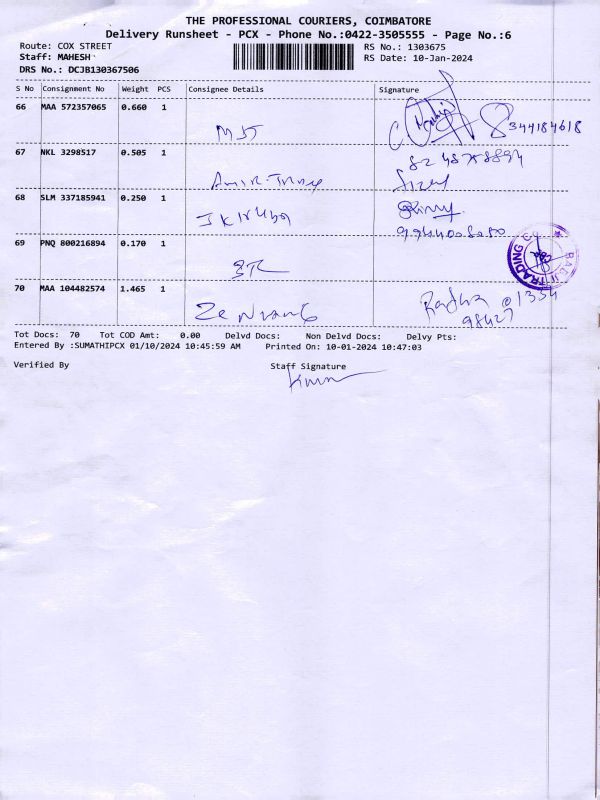 THE PROFESSIONAL COURIERS, COIMBATORE
Delivery Runsheet - PCX - Phone No.:0422-3505555 - Page No.:6
Route: COX STREET
RS No.: 1303675
Staff: MAHESH
RS Date: 10-Jan-2024
DRS No.: DCJB130367506
S No Consignment No Weight PCS Consignee Details Signature
66 MAA 572357065 0.660 1
MJJ
8344184618
67 NKL 3298517 0.505 1
68 SLM 337185941 0.250 1
69 PNQ 800216894 0.170 1
TRADING CO
70 MAA 104482574 1.465 1
Radha
Tot Docs: 70 Tot COD Amt: 0.00 Delvd Docs: Non Delvd Docs: Delvy Pts:
Entered By :SUMATHIPCX 01/10/2024 10:45:59 AM Printed On: 10-01-2024 10:47:03
Verified By
Staff Signature